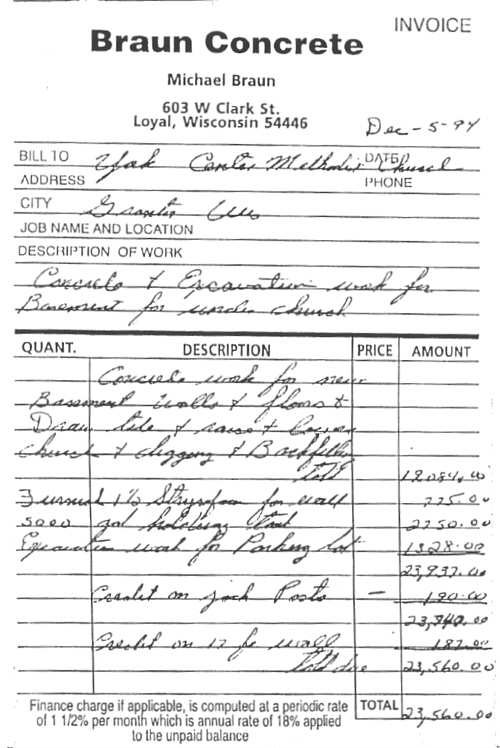 INVOICE
Braun Concrete
Michael Braun
603 W Clark St.
Loyal, Wisconsin 54446
Dec-5-94
BILL TO York Center Methodist Church DATE
ADDRESS PHONE
CITY Granton Wis
JOB NAME AND LOCATION
DESCRIPTION OF WORK
Concrete & Excavation work for
Basement for under church
QUANT. DESCRIPTION PRICE AMOUNT
Concrete work for new
Basement walls & floors &
Drain tile & raise & lower
church & digging & Backfilling
total
Furnish 1½ Styrofoam for wall 775.00
5000 gal holding tank 2750.00
Excavation work for Parking Lot 1328.00
23,937.00
Credit on jack Posts – 190.00
Credit on 17 ft wall 187.00
total due 23,560.00
Finance charge if applicable, is computed at a periodic rate
of 1 1/2% per month which is annual rate of 18% applied
to the unpaid balance
TOTAL 23,560.00